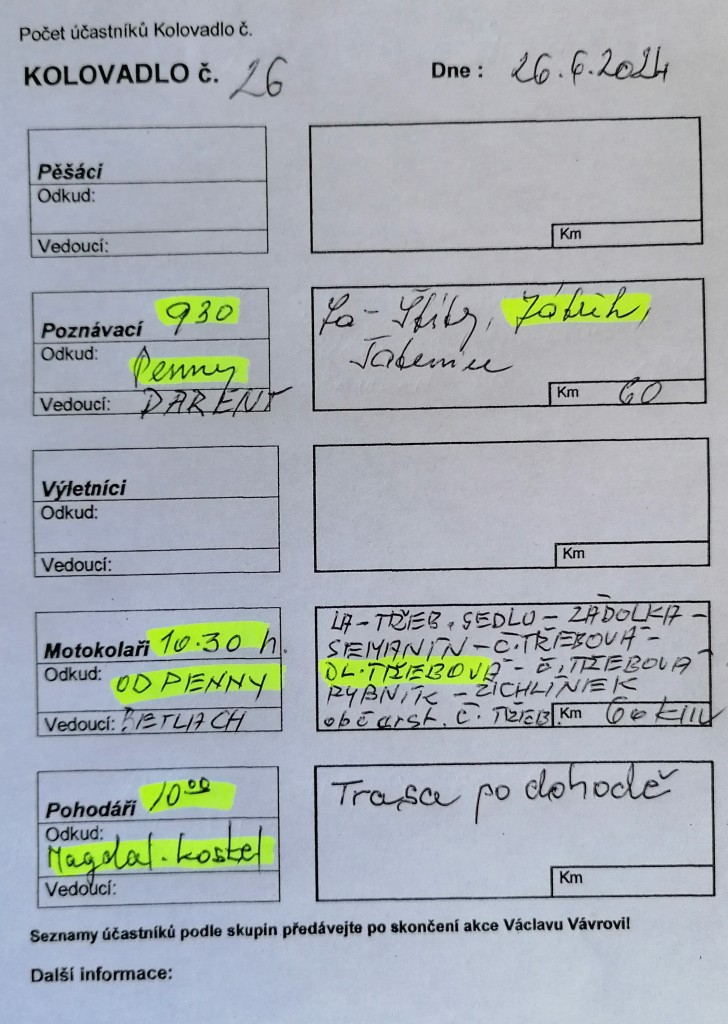 Počet účastníků Kolovadlo č.
KOLOVADLO č. 26 Dne : 26.6.2024
Pěšáci
Odkud:
Vedoucí:
Km
Poznávací 930
Odkud: Penny
Vedoucí: DARENT
La - Štíty, Zábřeh,
Tatenice
Km 60
Výletníci
Odkud:
Vedoucí:
Km
Motokolaři 10.30 h.
Odkud: OD PENNY
Vedoucí: BETLACH
LA-TŘEB. SEDLO - ZÁDOLKA -
SEMANÍN - Č.TŘEBOVÁ -
DL.TŘEBOVÁ - Č.TŘEBOVÁ
RYBNÍK - ZICHLÍNEK
občerst. Č. TŘEB.
Km 60 km
Pohodáři 10⁰⁰
Odkud: Magdal. kostel
Vedoucí:
Trasa po dohodě
Km
Seznamy účastníků podle skupin předávejte po skončení akce Václavu Vávrovi!
Další informace: